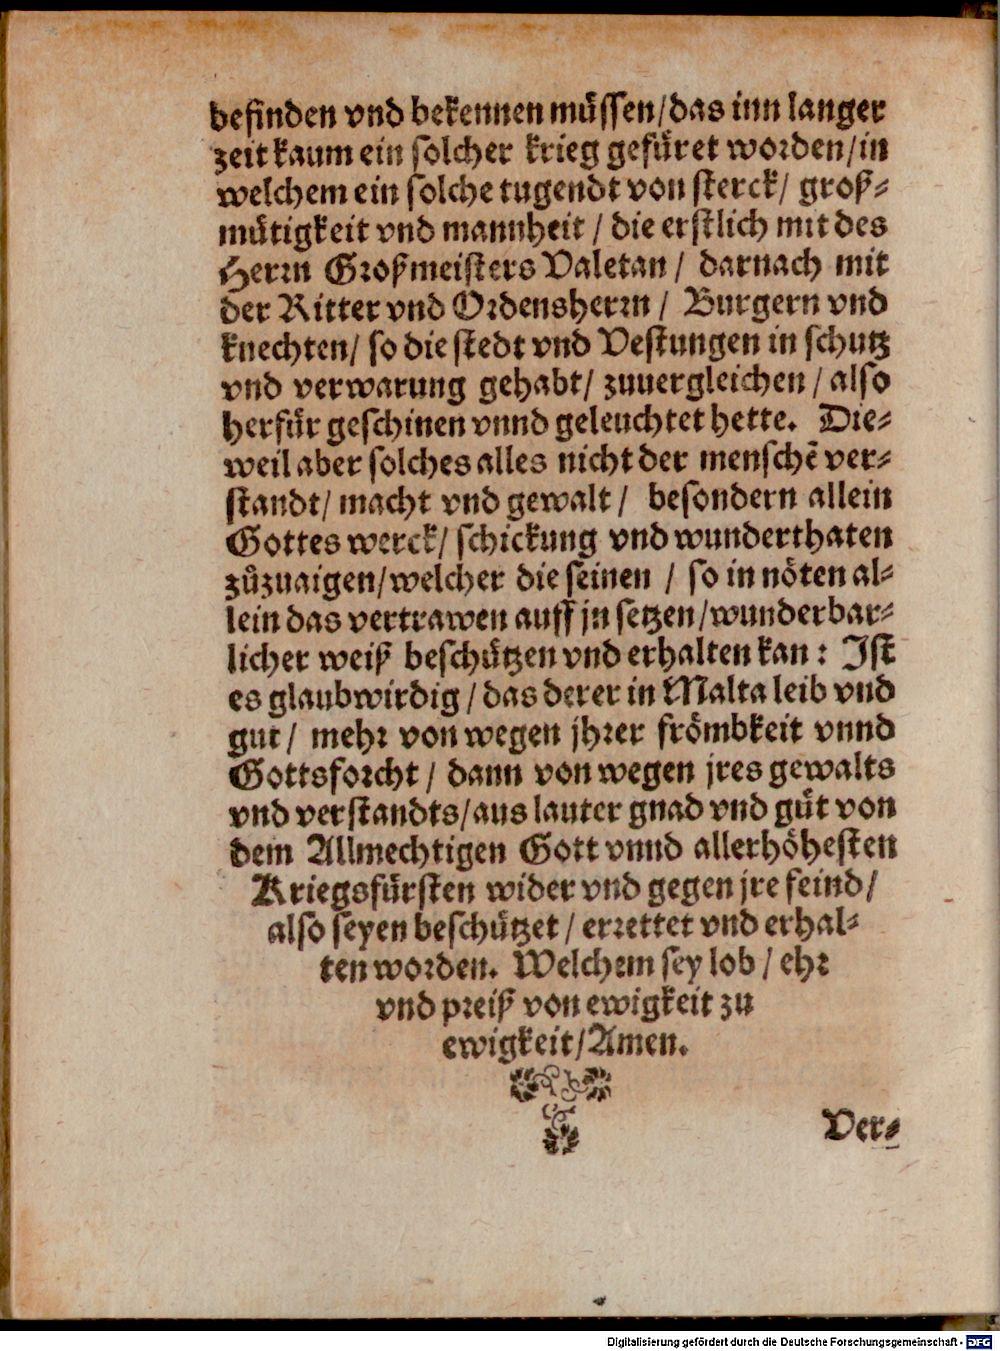 befinden vnd bekennen müssen/das inn langer
zeit kaum ein solcher krieg gefüret worden/in
welchem ein solche tugendt von sterck/ groß-
mütigkeit vnd mannheit / die erstlich mit des
Herrn Großmeisters Valetan / darnach mit
der Ritter vnd Ordensherrn / Burgern vnd
knechten/ so die stedt vnd Vestungen in schutz
vnd verwarung gehabt/ zuuergleichen / also
herfür geschinen vnnd geleuchtet hette. Die-
weil aber solches alles nicht der menschẽ ver-
standt/ macht vnd gewalt / besondern allein
Gottes werck/ schickung vnd wunderthaten
zůzuaigen/welcher die seinen / so in nöten al-
lein das vertrawen auff jn setzen/wunderbar-
licher weiß beschützen vnd erhalten kan : Ist
es glaubwirdig / das derer in Malta leib vnd
gut / mehr von wegen jhrer frömbkeit vnnd
Gottsforcht / dann von wegen jres gewalts
vnd verstandts/aus lauter gnad vnd güt von
dem Allmechtigen Gott vnnd allerhöhesten
Kriegsfürsten wider vnd gegen jre feind/
also seyen beschützet / errettet vnd erhal-
ten worden. Welchem sey lob / ehr
vnd preiß von ewigkeit zu
ewigkeit/Amen.
Ver-
Digitalisierung gefördert durch die Deutsche Forschungsgemeinschaft - DFG